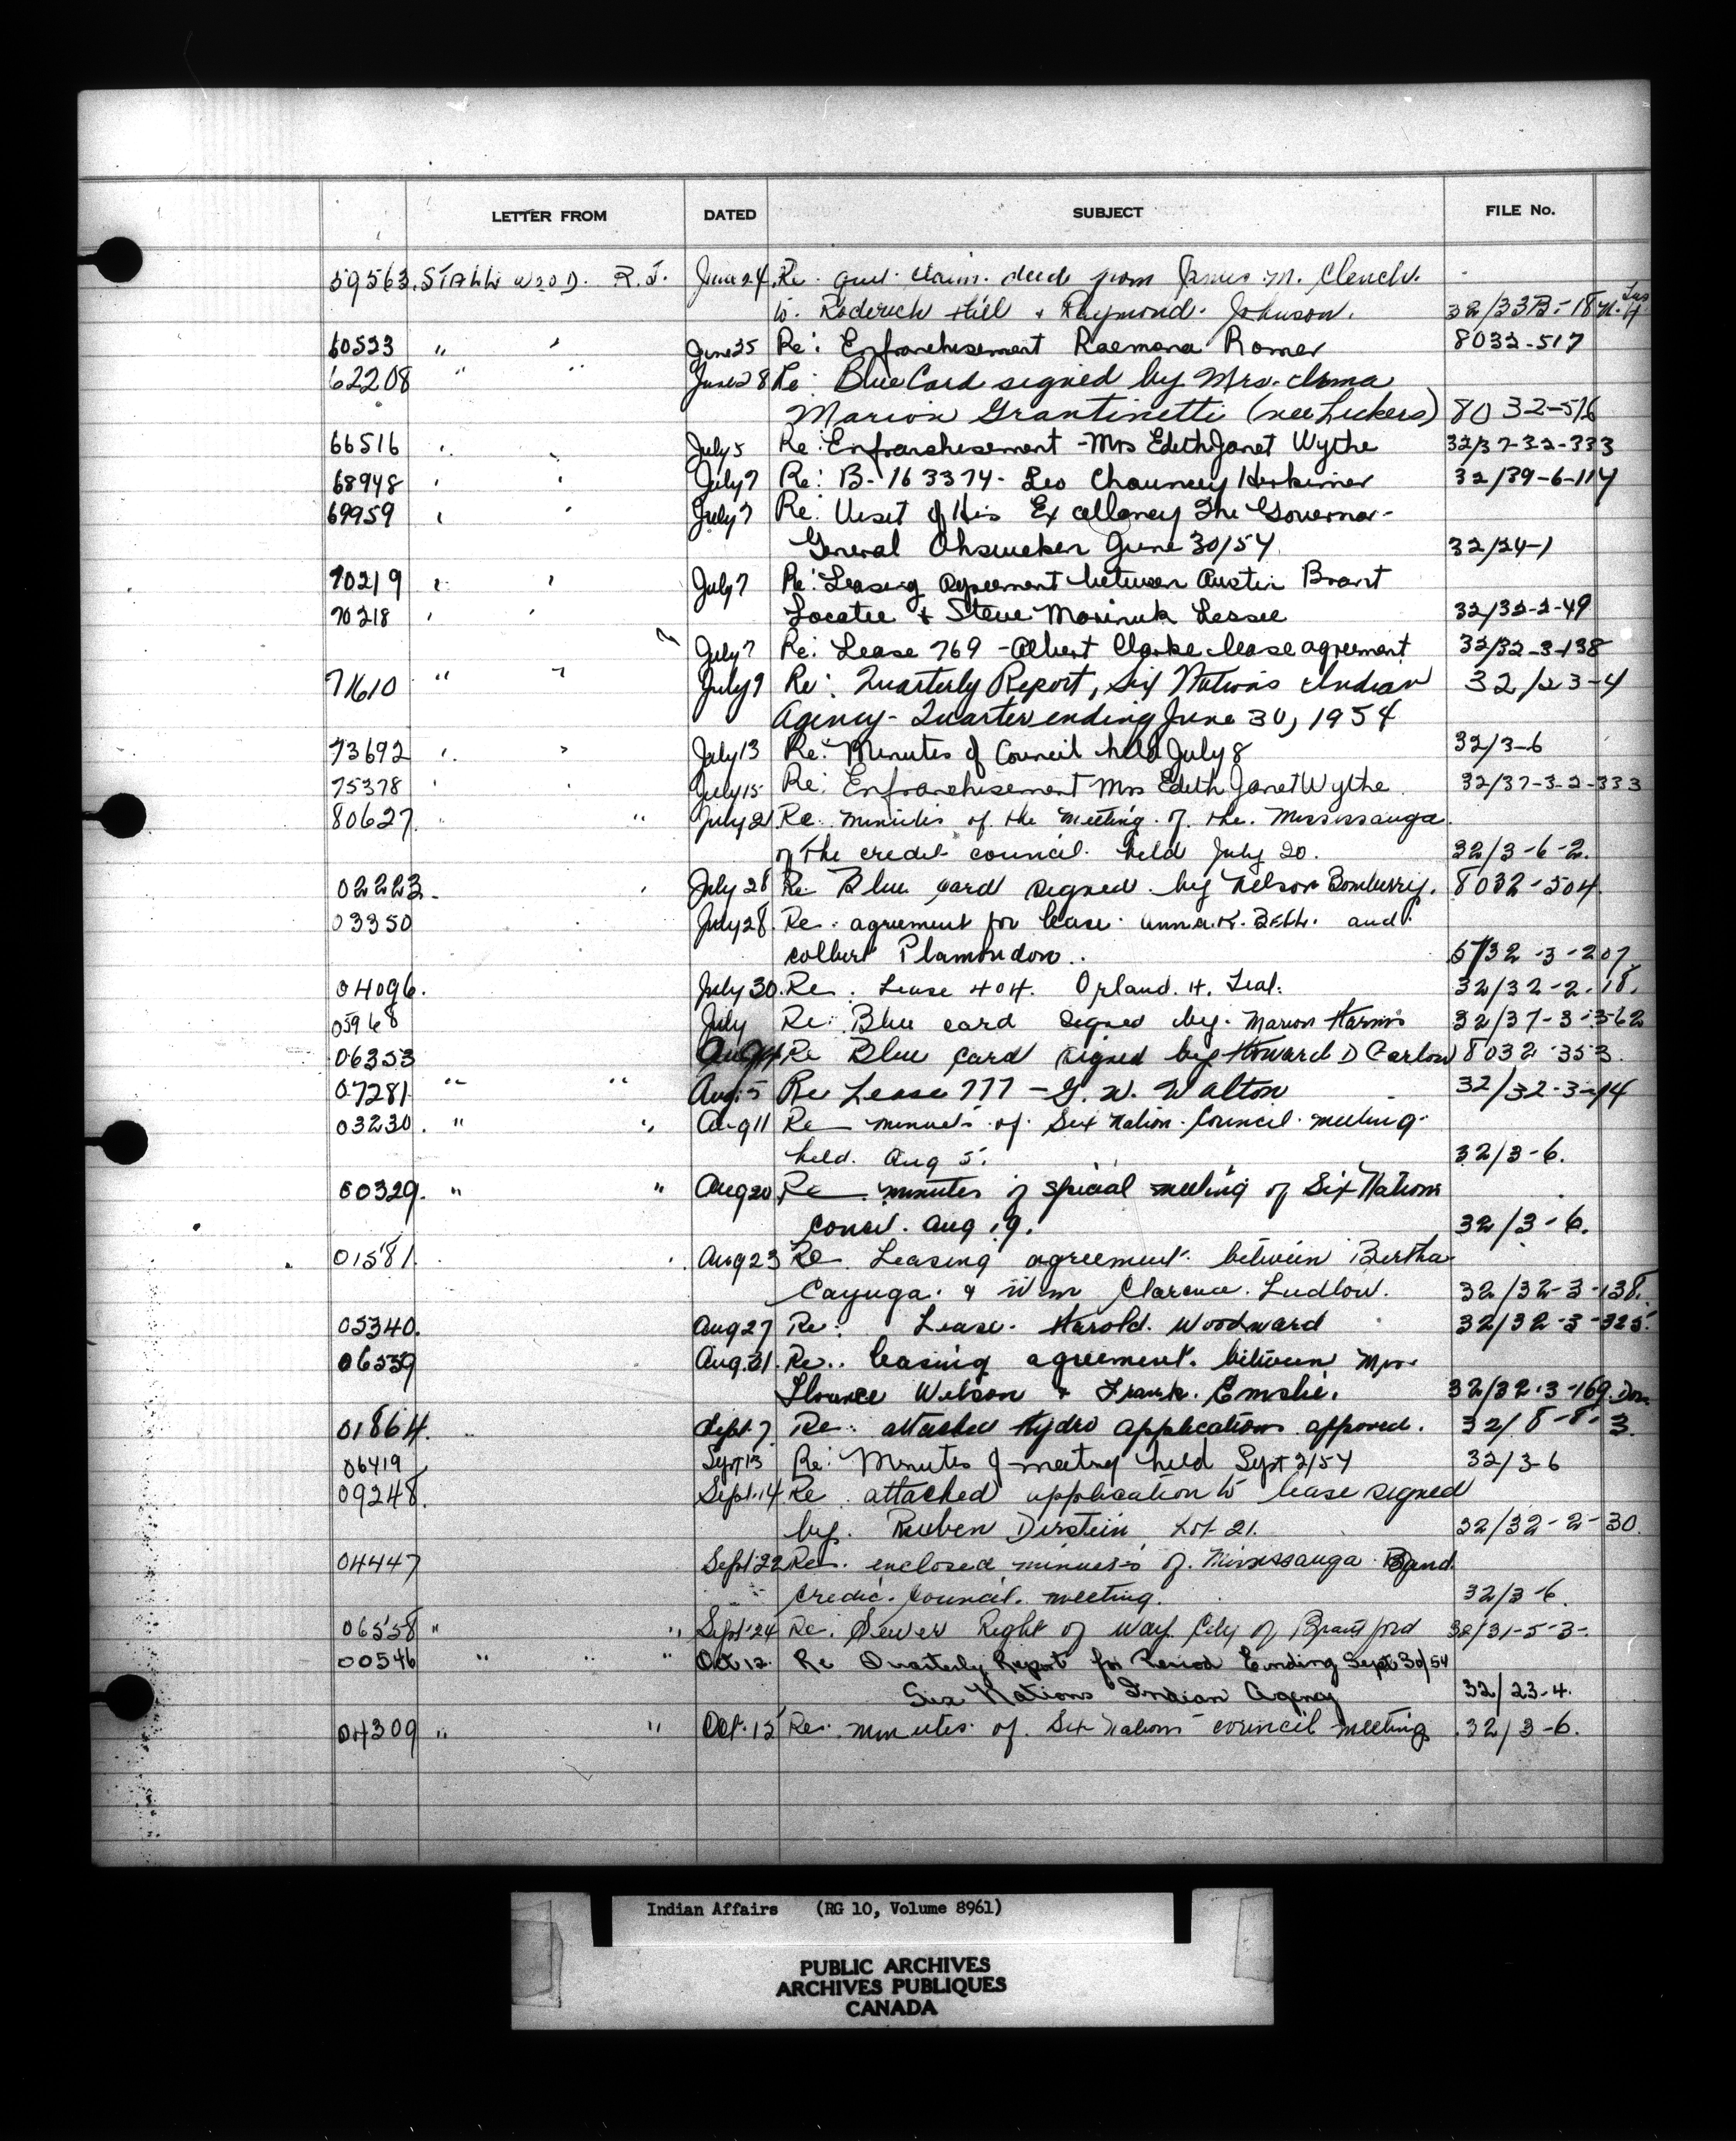 LETTER FROM DATED SUBJECT FILE No.
59563. STALLWOOD. R.J. June 24. Re. quit claim. deed from James M. Clench.
to. Roderick Hill & Raymond. Johnson. 32/33B-18
60523 " " June 25 Re: Enfranchisement Raemona Romer 8032-517
62208 " " June 28 Re: Blue Card signed by Mrs.
Marion Grantinetti (nee Lickers) 8032-516
66516 " " July 5 Re: Enfranchisement - Mrs Edith Janet Wythe 32/37-32-333
68948 " " July 7 Re: B-163374- Leo Chauncey Herkimer 32/39-6-114
69959 " " July 7 Re: Visit of His Excellency The Governor-
General Ohsweken June 30/54 32/24-1
70219 " " July 7 Re: Leasing Agreement between Austin Brant
70218 " " Locatee & Steve Lessee 32/32-2-49
" July 7 Re: Lease 769 - Albert Clarke lease agreement 32/32-3-138
71610 " " July 9 Re: Quarterly Report, Six Nations Indian 32/23-4
Agency- Quarter ending June 30, 1954
73692 " " July 13 Re: Minutes of Council held July 8 32/3-6
75378 " " July 15 Re: Enfranchisement Mrs Edith Janet Wythe 32/37-3-2-333
80627. " " July 21 Re. minutes of the meeting of the. Mississauga.
of the credit council. held July 20. 32/3-6-2.
02223. " July 28 Re Blue card signed by Nelson Bomberry. 8032-504.
03350 July 28. Re. agreement for lease. anna. K. Bell. and
colbert Plamondon.. 57/32-3-207
04096. July 30. Re. Lease 404. Orland. H. Teal. 32/32-2-18.
05968 July Re: Blue card signed by. Marion Harris 32/37-3-362
06353 Aug 4 Re Blue card signed by Howard D Garlow 8032-353.
07281. " " Aug. 5 Re Lease 777 - G. W. Walton 32/32-3-14
03230. " " Aug 11 Re minutes of. Six Nation. Council. meeting.
held. Aug 5. 32/3-6.
00329. " " Aug 20 Re minutes of special meeting of Six Nations
council. Aug 19. 32/3-6.
01581. " Aug 23 Re. Leasing agreement. between Bertha
Cayuga. & Wm Clarence. Ludlow. 32/32-3-138.
05340. Aug 27 Re: Lease. Harold. Woodward 32/32-3-325.
06539 Aug. 31. Re.. leasing agreement. between Mrs.
Florence Wilson & Frank. Emslie. 32/32-3-169.
01864. " Sept. 7 Re: attached hydro applications approved. 32/8-8-3.
06419 Sept 13 Re: Minutes of meeting held Sept 2/54 32/3-6
09248. Sept. 14 Re. attached application to lease signed
by. Reuben Dirstein Lot 21. 32/32-2-30.
04447 Sept 22 Re. enclosed minutes of. Mississauga Band
Credit. Council. meeting. 32/3-6.
06558 " " Sept. 24 Re. Sewer Right of way. City of Brantford 32/31-5-3-.
00546 " " " Oct 12. Re Quarterly Report for Period Ending Sept 30/54
Six Nations Indian Agency 32/23-4.
04309 " " Oct. 15 Re. minutes of. Six Nations council meeting 32/3-6.
Indian Affairs (RG 10, Volume 8961)
PUBLIC ARCHIVES
ARCHIVES PUBLIQUES
CANADA